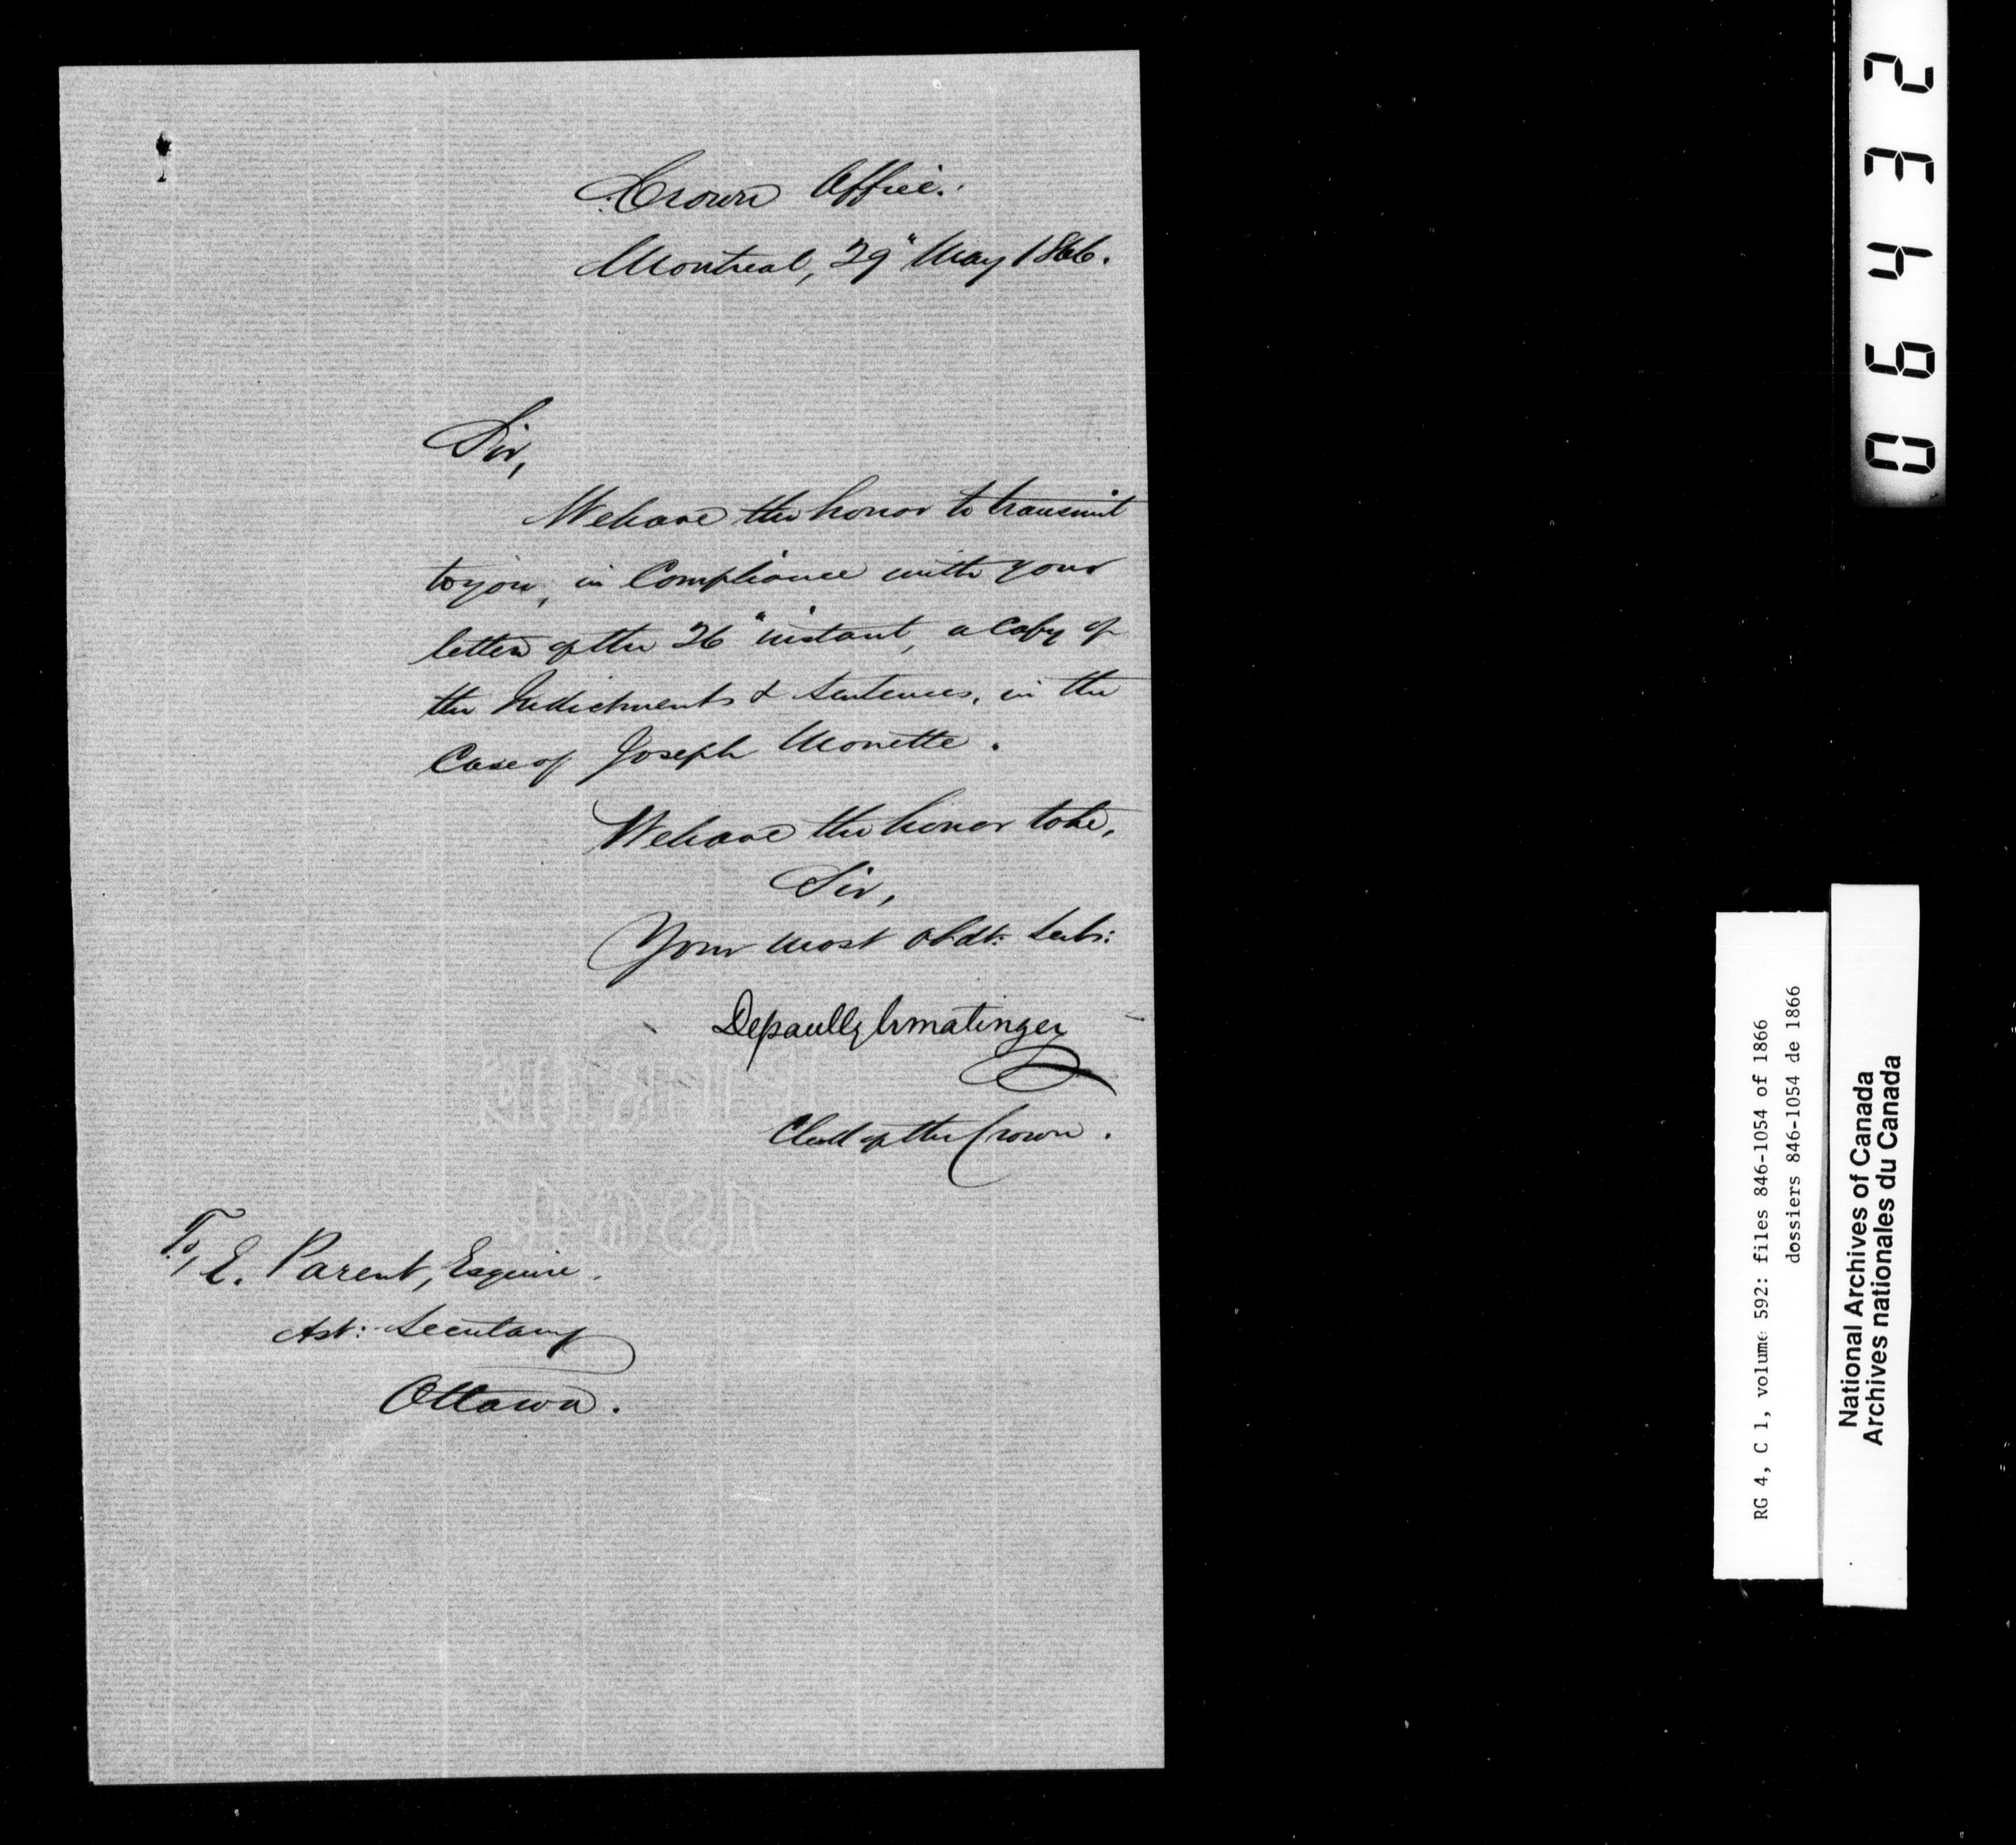 Crown Office.
Montreal, 29" May 1866.
Sir,
We have the honor to transmit
to you, in Compliance with your
letter of the 26" instant, a Copy of
the Indictments & Sentences, in the
Case of Joseph Monette.
We have the honor to be,
Sir,
Your most obdt:
Clerk of the Crown.
To,
E. Parent, Esquire.
Ast: Secretary
Ottawa.
06432
RG 4, C 1, volume 592: files 846-1054 of 1866
dossiers 846-1054 de 1866
National Archives of Canada
Archives nationales du Canada